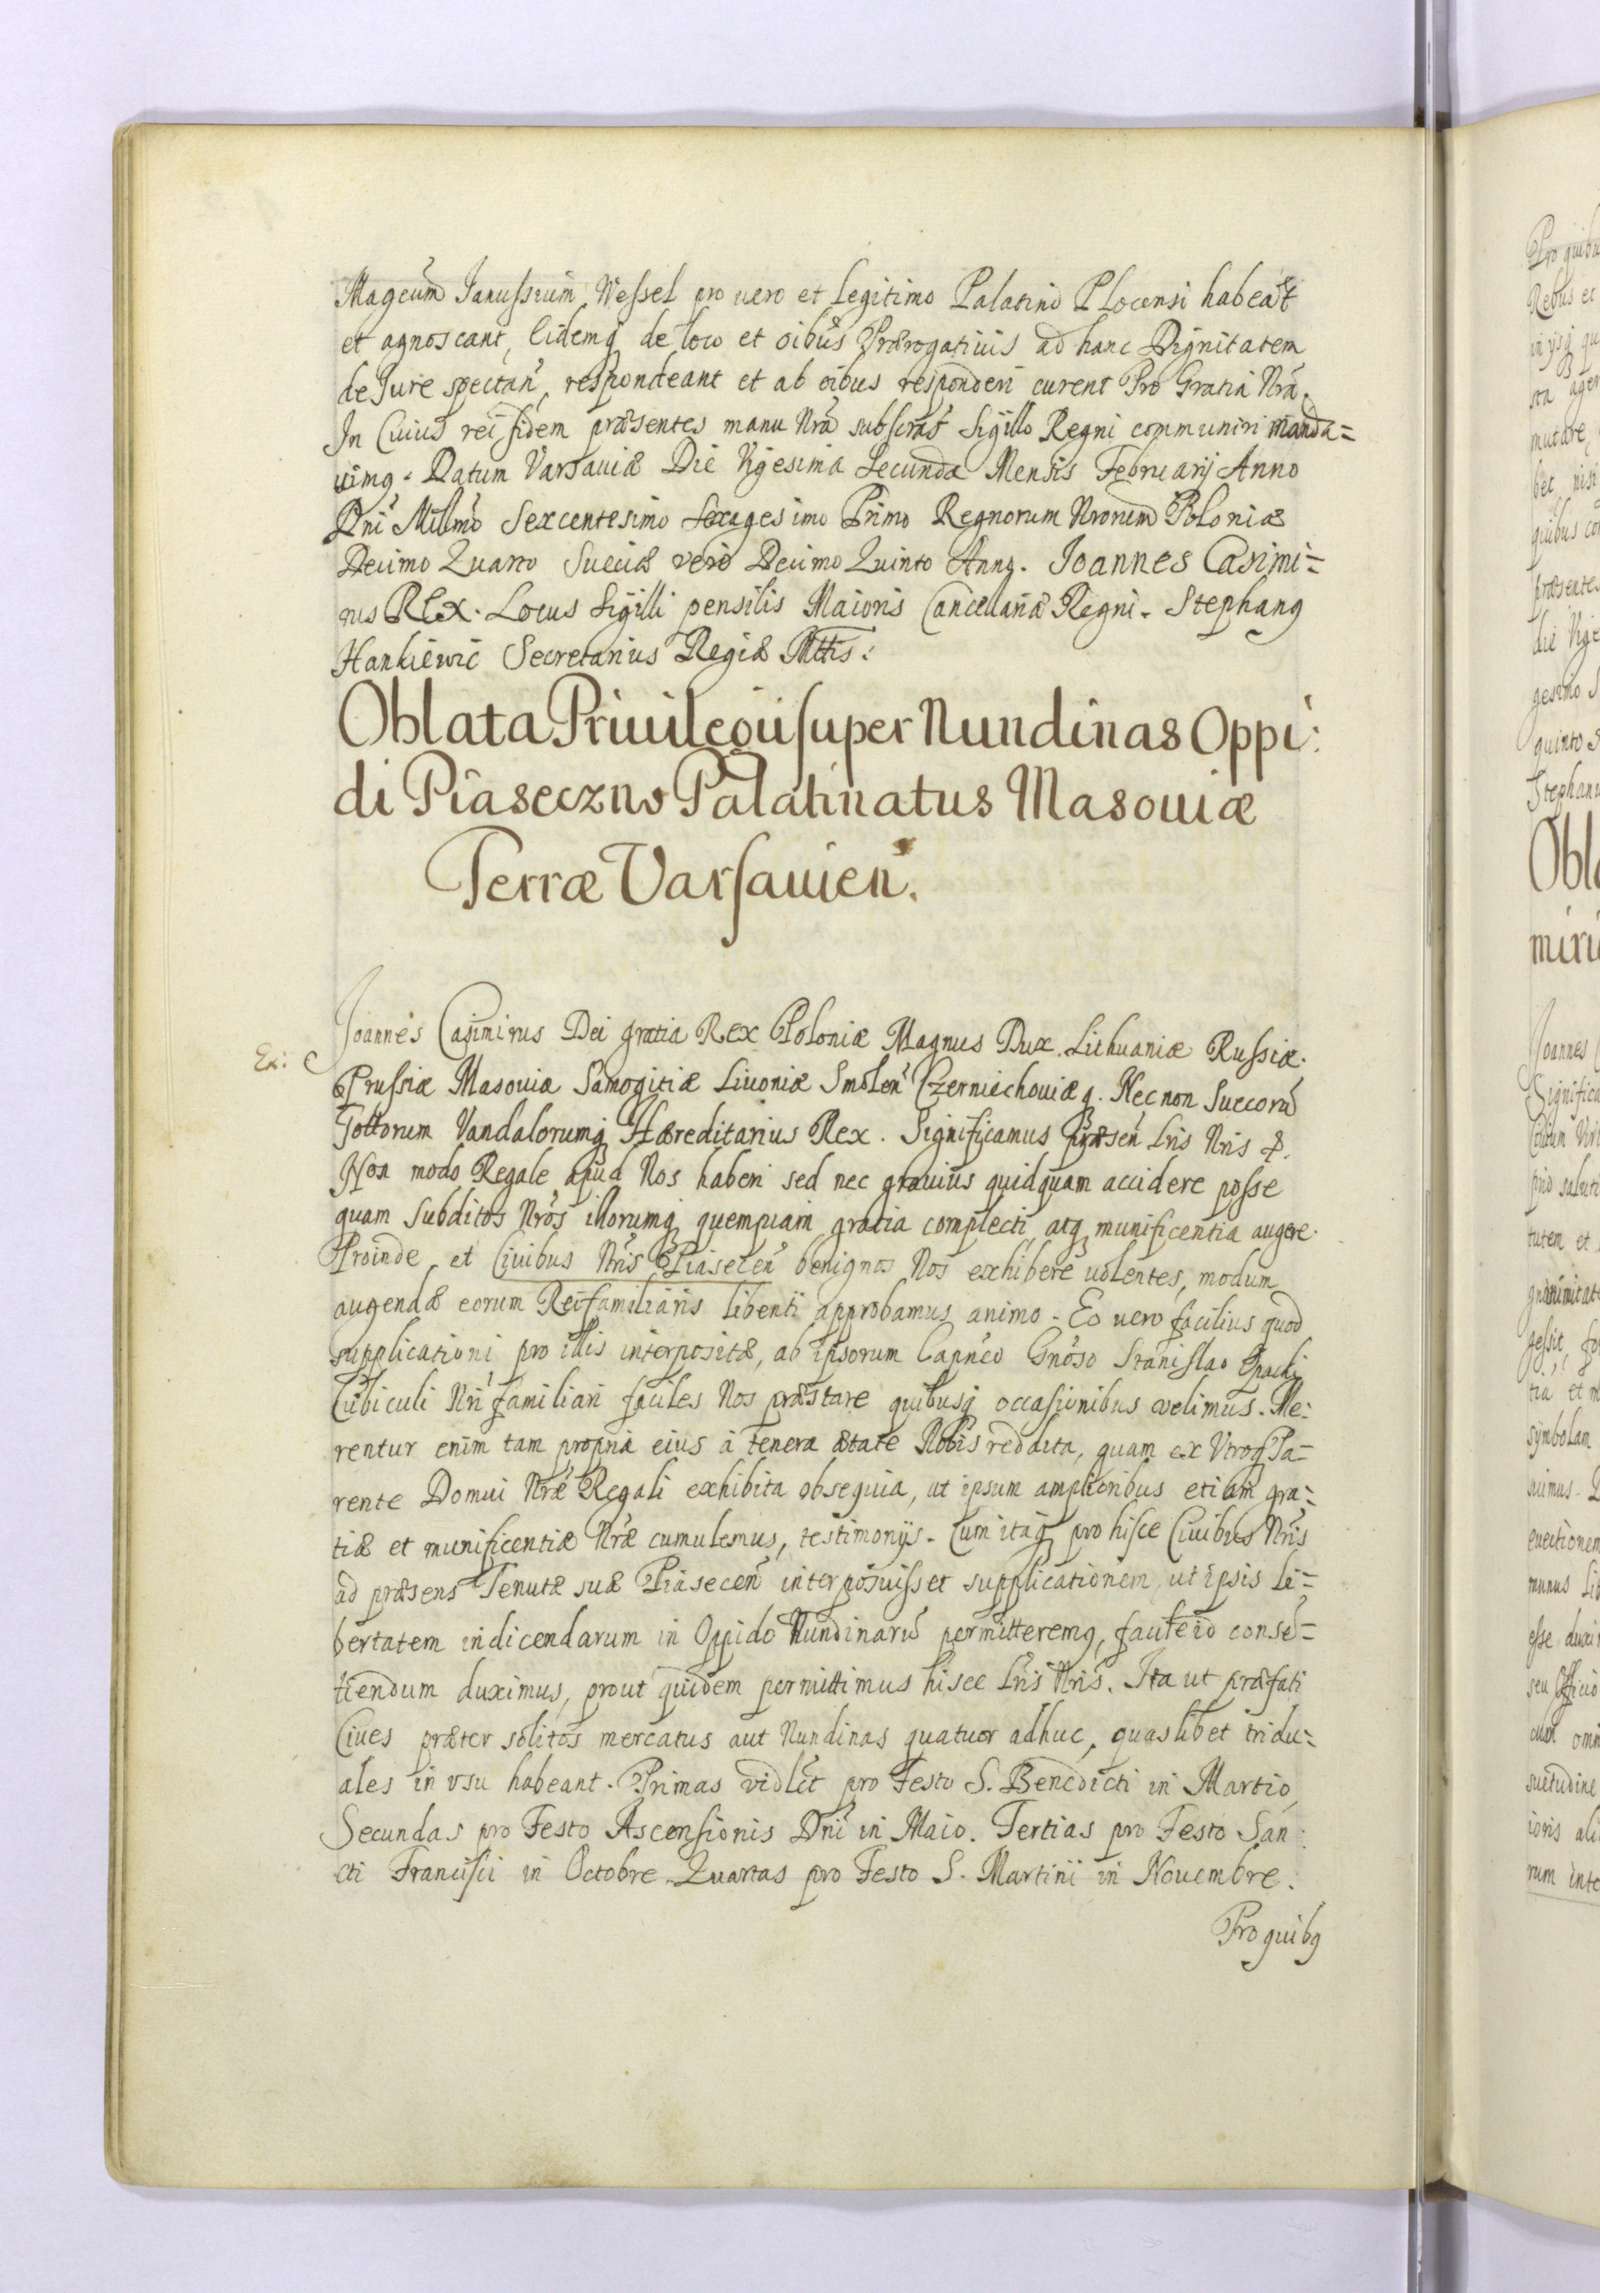 Magcum̃ Janussium Wessel pro vero et legitimo Palatino Plocensi habeat̃
et agnoscant, Eidemq́ de loco et oibus̃ Prærogativis ad hanc Dignitatem
de Jure spectan̄, respondeant et ab oibus responderi curent Pro Gratia Nrã.
In Cuius rei fidem præsentes manu Nrã subscrat̃ Sigillo Regni communiri manda=
vimq. Datum Varsaviæ Die Vigesima Secunda Mensis Februarij Anno
Dni̅ Millmõ Sexcentesimo Sexagesimo Primo Regnorum Nrorum̃ Poloniæ
Decimo Quarto Sueciæ vero Decimo Quinto Annq. Joannes Casimi=
rus Rex. Locus Sigilli pensilis Maioris Cancellariæ Regni. Stephanq
Hankiewic Secretarius Regiæ Mttis:
Oblata Privilegii super Nundinas Oppi:
di Piaseczno Palatinatus Masoviæ
Terræ Varsavien̄.
Ex:
Joannes Casimirus Dei gratia Rex Poloniæ Magnus Dux Lithuaniæ Russiæ.
Prussiæ Masoviæ Samogitiæ Livoniæ Smolen̄ Czerniechoviæq. Nec non Suecorū
Gottorum Vandalorumq́ Hæreditarius Rex. Significamus præsen̄ Lris Nris &.
Non modo Regale apud Nos haberi sed nec gravius quidquam accidere posse
quam Subditos Nrõs illorumq́ quempiam gratia complecti, atq́ munificentia augere.
Proinde et Civibus Nris̃ Piasecen̄ benignos Nos exhibere volentes, modum
augendæ eorum Rei familiaris libenti approbamus animo. Eo vero facilius quod
supplicationi pro illis interpositæ, ab ipsorum Capneõ Gnõso Stanislao Opacki
Cubiculi Nri̅ familiari faciles Nos præstare quibusq́ occasionibus velimus. Me:
rentur enim tam propria eius à tenera ætate Nobis reddita, quam ex Utroq́ Pa=
rente Domui Nræ̃ Regali exhibita obsequia, ut ipsum amplioribus etiam gra=
tiæ et munificentiæ Nræ̃ cumulemus, testimonijs. Cum itaq́ pro hisce Civibus Nris̃
ad præsens Tenutæ suæ Piasecen̄ interposuisset supplicationem, ut ipsis Li=
bertatem indicendarum in Oppido Nundinarū permitteremq, facile id consē=
tiendum duximus, prout quidem permittimus hisce Lris̃ Nris̃. Ita ut præfati
Cives præter solitos mercatus aut Nundinas quatuor adhuc, quaslibet tridu=
ales in usu habeant. Primas vidlet̃ pro Festo S. Benedicti in Martio,
Secundas pro Festo Ascensionis Dni̅ in Maio. Tertias pro Festo San
cti Francisci in Octobre. Quartas pro Festo S. Martini in Novembre.
Pro quibq